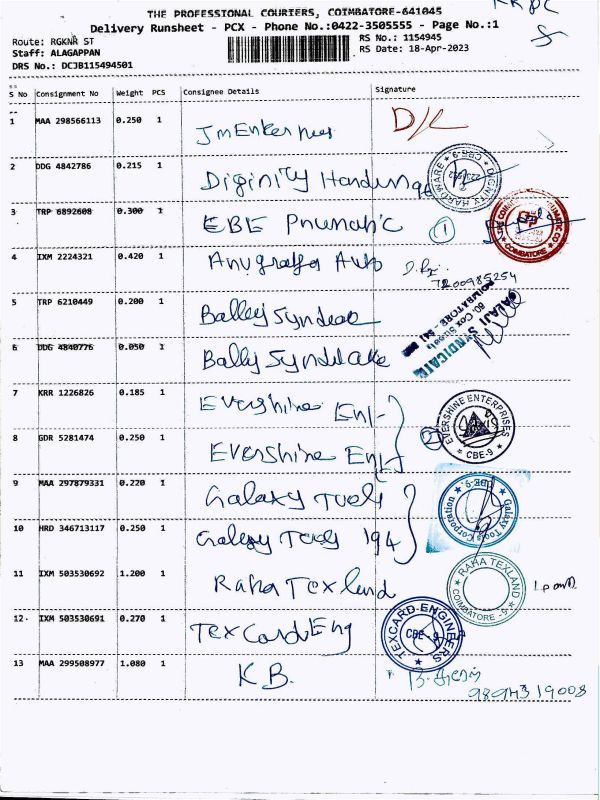 THE PROFESSIONAL COURIERS, COIMBATORE-641045
Delivery Runsheet - PCX - Phone No.:0422-3505555 - Page No.:1
Route: RGKNR ST
RS No.: 1154945
Staff: ALAGAPPAN
RS Date: 18-Apr-2023
DRS No.: DCJB115494501
S No Consignment No Weight PCS Consignee Details Signature
1 MAA 298566113 0.250 1 D/L
2 DDG 4842786 0.215 1 DIGNITY HARDWARE CBE-9
3 TRP 6892608 0.300 1 EBE Pnumatic 1 COIMBATORE
4 IXM 2224321 0.420 1 Anugraha Auto
5 TRP 6210449 0.200 1
BALAJI SYNDICATE
COIMBATORE
6 DDG 4840776 0.050 1
7 KRR 1226826 0.185 1 Evershine Eng
EVERSHINE ENTERPRISES CBE-9
8 GDR 5281474 0.250 1 Evershine Eng 2
9 MAA 297879331 0.220 1 Galaxy Tools
Galaxy Tools Corporation CBE-5
10 HRD 346713117 0.250 1 Galaxy Tools 194
11 IXM 503530692 1.200 1 Raha Texland
RAHA TEXLAND COIMBATORE -5
12 IXM 503530691 0.270 1 TexCard Eng
TEXCARD ENGINEERS CBE - 9
13 MAA 299508977 1.080 1 K.B.